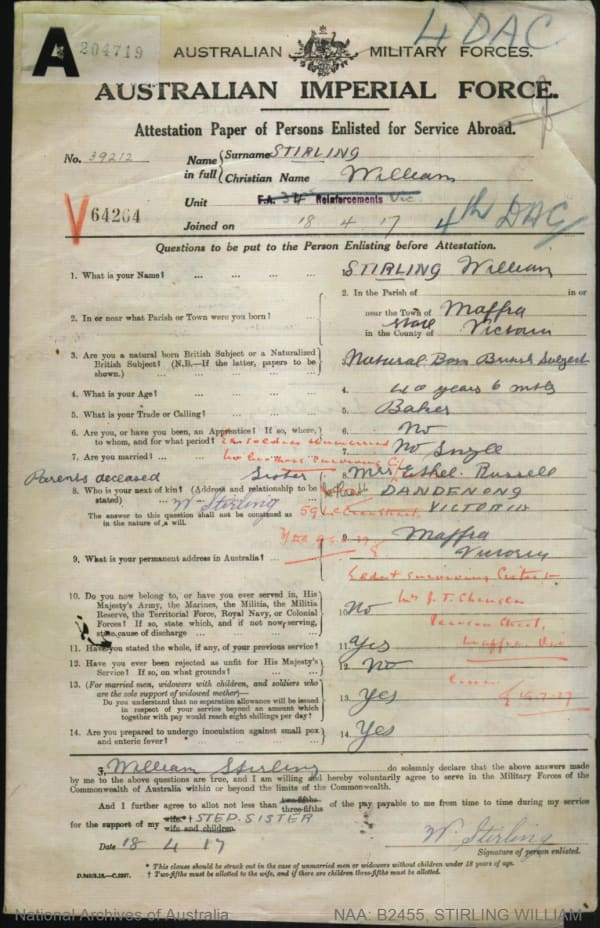 A 204719
4 DAC
AUSTRALIAN MILITARY FORCES.
AUSTRALIAN IMPERIAL FORCE.
Attestation Paper of Persons Enlisted for Service Abroad.
No. 39212 Name in full { Surname STIRLING
Christian Name William
V 64264
Unit F.A. 34 Reinforcements Vic
Joined on 18 4 17 4th DAC
Questions to be put to the Person Enlisting before Attestation.
1. What is your Name? ... STIRLING William
2. In or near what Parish or Town were you born? ... 2. In the Parish of in or
near the Town of Maffra
state
in the County of Victoria
3. Are you a natural born British Subject or a Naturalized British Subject? (N.B.—If the latter, papers to be shown.) 3. Natural Born British Subject
4. What is your Age? ... 4. 40 years 6 mths
5. What is your Trade or Calling? ... 5. Baker
6. Are you, or have you been, an Apprentice? If so, where, to whom, and for what period? 6. No
7. Are you married? ... 7. No Single
Parents deceased Sister Mrs Ethel Russell
8. Who is your next of kin? (Address and relationship to be stated) DANDENONG
W Stirling VICTORIA
The answer to this question shall not be construed as in the nature of a will.
9. What is your permanent address in Australia? ... 9. Maffra
Victoria
Eldest surviving Sister
10. Do you now belong to, or have you ever served in, His Majesty's Army, the Marines, the Militia, the Militia Reserve, the Territorial Force, Royal Navy, or Colonial Forces? If so, state which, and if not now serving, state cause of discharge ... 10. No
Maffra Vic
11. Have you stated the whole, if any, of your previous service? 11. Yes
12. Have you ever been rejected as unfit for His Majesty's Service? If so, on what grounds? 12. No
13. (For married men, widowers with children, and soldiers who are the sole support of widowed mother)—
Do you understand that no separation allowance will be issued in respect of your service beyond an amount which together with pay would reach eight shillings per day? 13. Yes
14. Are you prepared to undergo inoculation against small pox and enteric fever? 14. Yes
I, William Stirling do solemnly declare that the above answers made
by me to the above questions are true, and I am willing and hereby voluntarily agree to serve in the Military Forces of the
Commonwealth of Australia within or beyond the limits of the Commonwealth.
And I further agree to allot not less than two-fifths three-fifths of the pay payable to me from time to time during my service
for the support of my wife * † STEP. SISTER
wife and children.
Date 18 4 17 W. Stirling
Signature of person enlisted.
* This clause should be struck out in the case of unmarried men or widowers without children under 18 years of age.
† Two-fifths must be allotted to the wife, and if there are children three-fifths must be allotted.
National Archives of Australia NAA: B2455, STIRLING WILLIAM